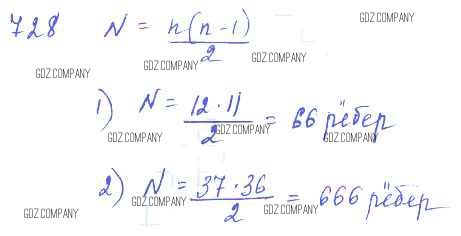 GDZ.COMPANY
728 N = n(n-1)/2
GDZ.COMPANY GDZ.COMPANY
1) N = 12·11/2 = 66 рёбер
GDZ.COMPANY GDZ.COMPANY GDZ.COMPANY
2) N = 37·36/2 = 666 рёбер
GDZ.COMPANY GDZ.COMPANY GDZ.COMPANY